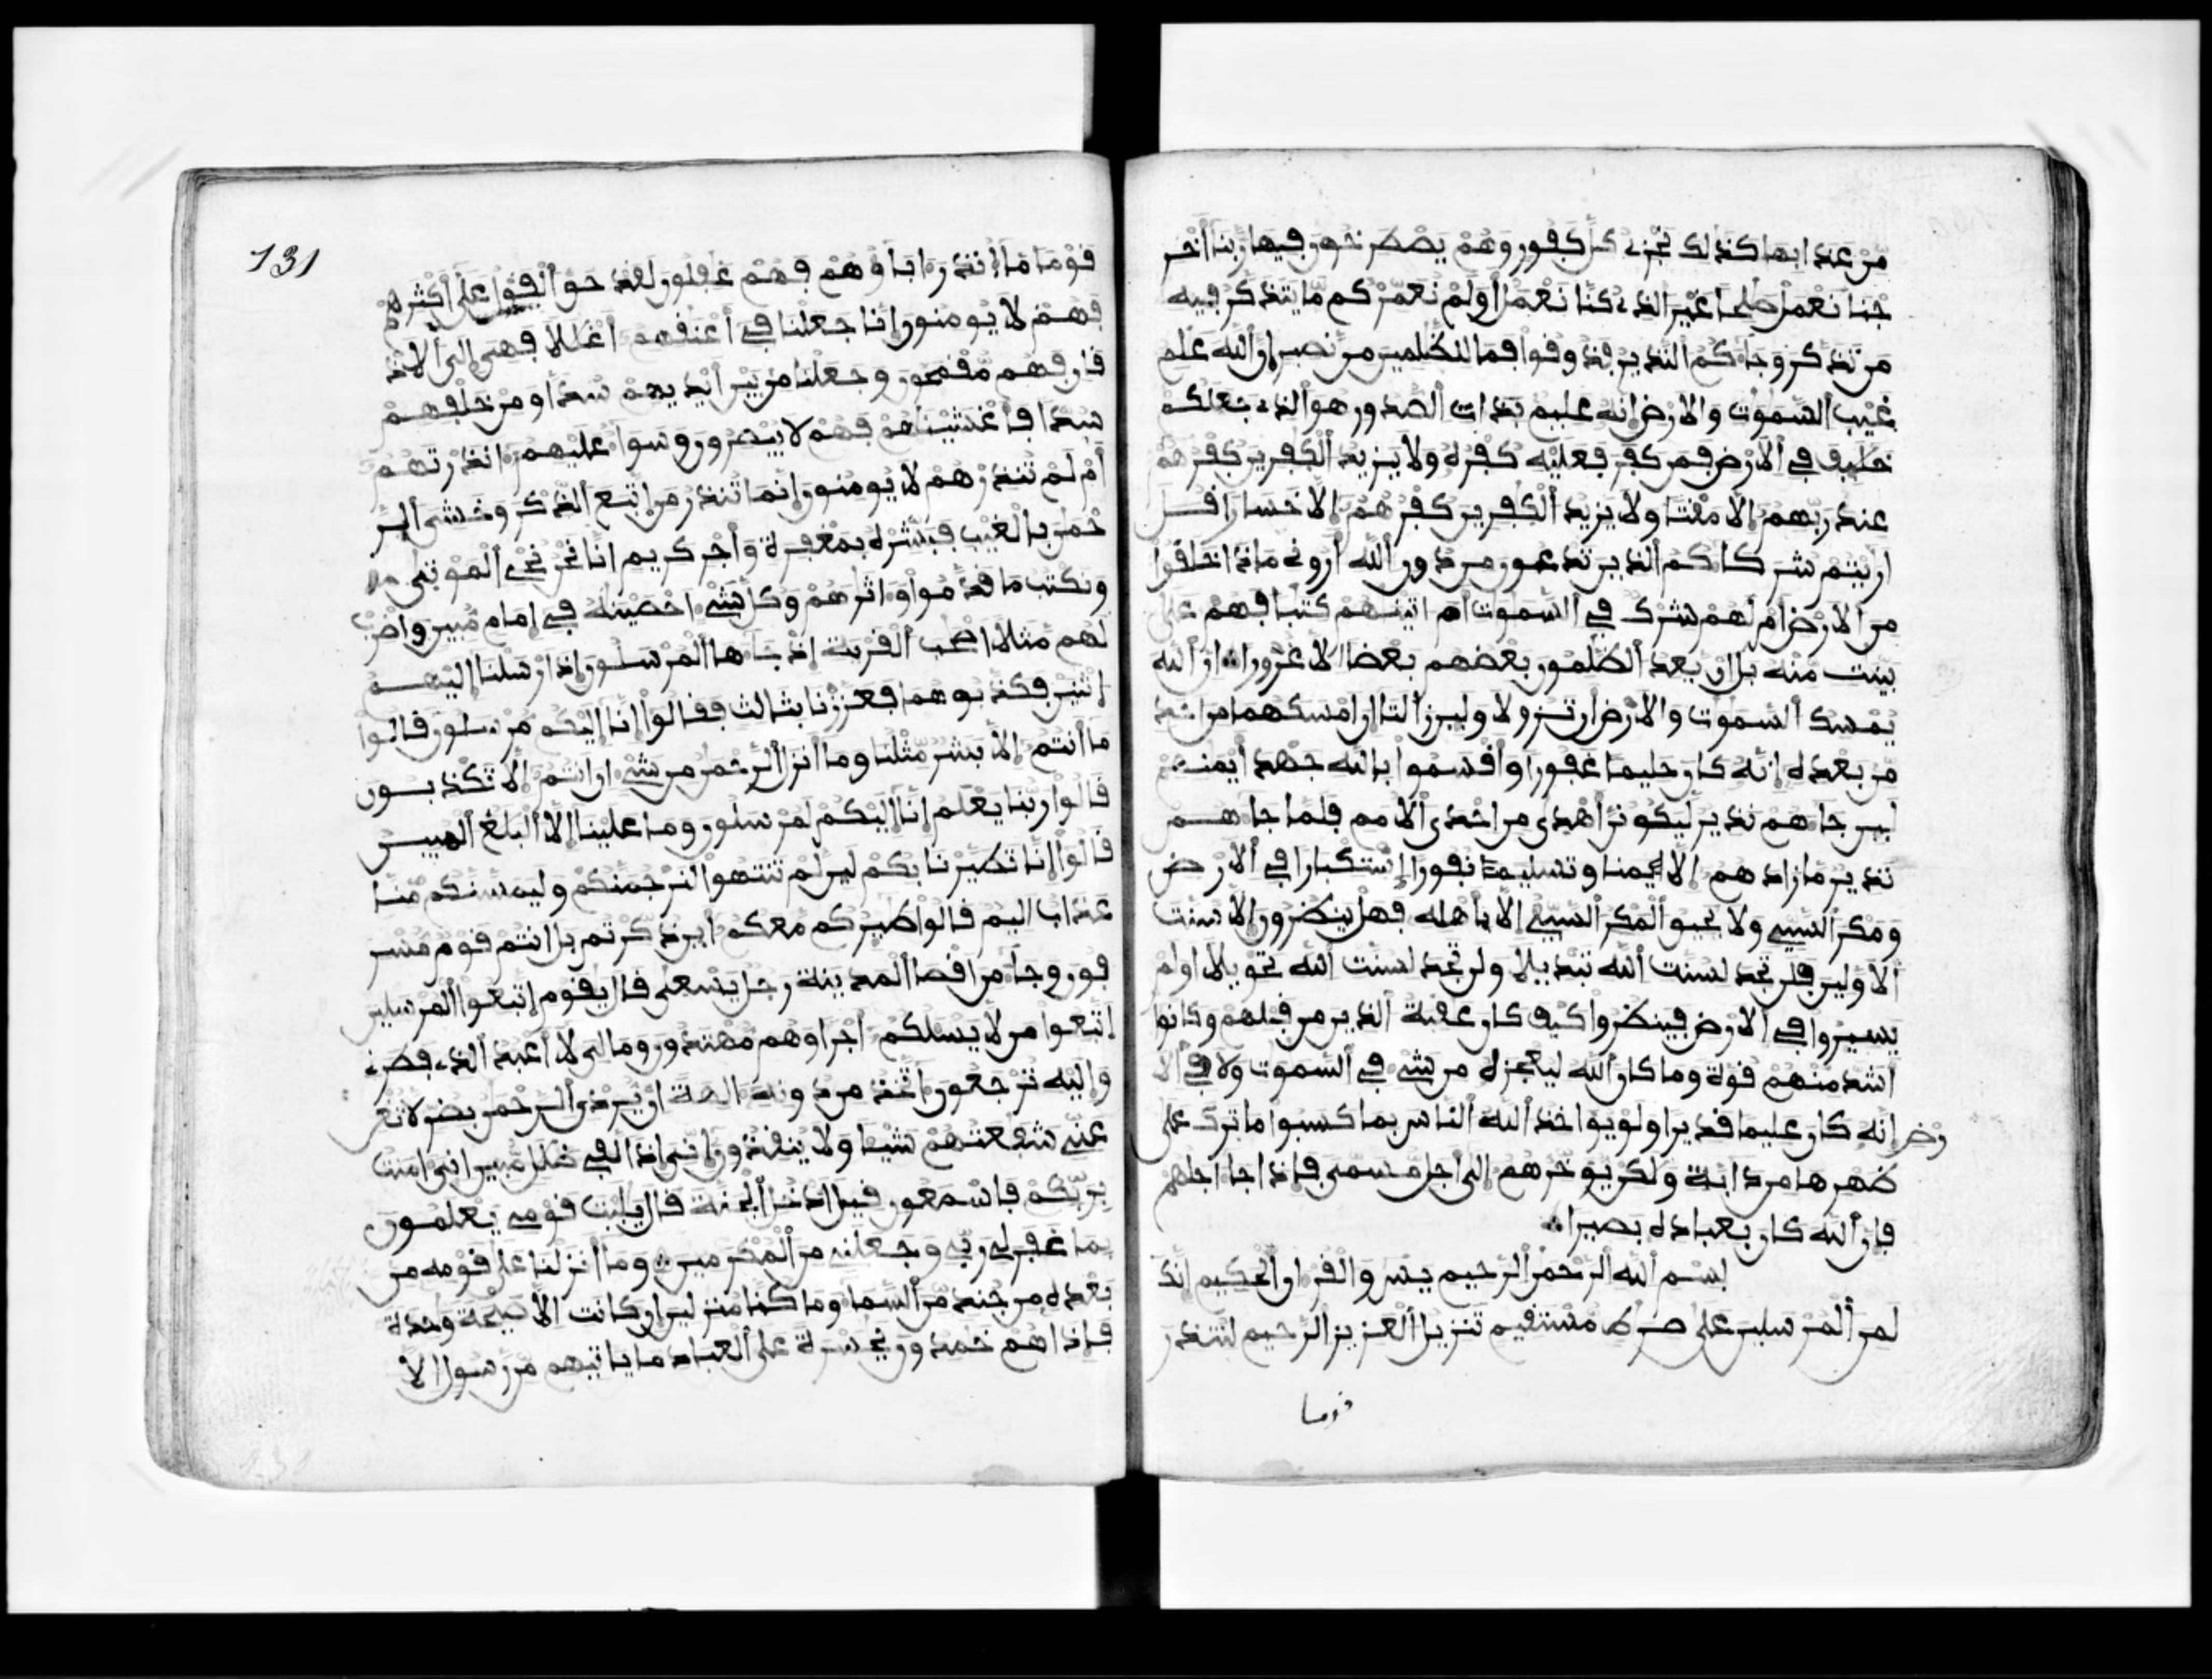 من عذابها كذلك نجزي كل كفور وهم يصطرخون فيها ربنا أخر
جنا نعمل صلحا غير الذي كنا نعمل أولم نعمركم ما يتذكر فيه
من تذكر وجاكم النذير فذوقوا فما للظلمين من نصير إن الله علم
غيب السموت والارض إنه عليم بذات الصدور هو الذي جعلكم
خليف في الارض فمن كفر فعليه كفره ولا يزيد الكفرين كفرهم
عند ربهم إلا مقتا ولا يزيد الكفرين كفرهم إلا خسارا قل
اريتم شركاكم الذين تدعون من دون الله أروني ماذا خلقوا
من الارض أم لهم شرك في السموت ام اتينهم كتبا فهم على
بينت منه بل إن يعد الظلمون بعضهم بعضا الا غرورا ان الله
يمسك السموت والارض ان تزولا ولين زالتا إن امسكهما من احد
من بعده إنه كان حليما غفورا واقسموا بالله جهد أيمنهم
لين جاهم نذير ليكونن أهدى من احدى الامم فلما جاهم
نذير ما زادهم إلا ايمنا وتسليما نفورا إستكبارا في الارض
ومكر السيي ولا يحيق المكر السيي إلا بأهله فهل ينظرون الا سنت
الاولين فلن تجد لسنت الله تبديلا ولن تجد لسنت الله تحويلا اولم
يسيروا في الارض فينظروا كيف كان عقبة الذين من قبلهم وكانوا
أشد منهم قوة وما كان الله ليعجزه من شي في السموت ولا في الا
رض إنه كان عليما قديرا ولو يواخذ الله الناس بما كسبوا ما ترك على
ظهرها من دابة ولكن يوخرهم إلى اجل مسمى فإذا جا اجلهم
فإن الله كان بعباده بصيرا
بسم الله الرحمن الرحيم يس والقران الحكيم إنك
لمن المرسلين على صرط مستقيم تنزيل العزيز الرحيم لتنذر
قوما
131
قوما ما أنذر اباوهم فهم غفلون لقد حق القول على أكثرهم
فهم لا يومنون إنا جعلنا في أعنقهم أغللا فهي إلى الاذ
قان فهم مقمحون وجعلنا من بين أيديهم سدا ومن خلفهم
سدا فأغشينهم فهم لا يبصرون وسوا عليهم انذرتهم
أم لم تنذرهم لا يومنون إنما تنذر من إتبع الذكر وخشي الر
حمن بالغيب فبشره بمغفرة وأجر كريم انا نحن نحي الموتى
ونكتب ما قدموا واثرهم وكل شي احصينه في إمام مبين واضرب
لهم مثلا اصحب القرية إذ جاها المرسلون إذ ارسلنا إليهم
إثنين فكذبوهما فعززنا بثالث فقالوا إنا إليكم مرسلون قالوا
ما أنتم إلا بشر مثلنا وما أنزل الرحمن من شي ان انتم إلا تكذبون
قالوا ربنا يعلم إنا إليكم لمرسلون وما علينا إلا البلغ المبين
قالوا إنا تطيرنا بكم لين لم تنتهوا لنرجمنكم وليمسنكم منا
عذاب اليم قالوا طيركم معكم أين ذكرتم بل انتم قوم مسر
فون وجا من اقصا المدينة رجل يسعى قال يقوم إتبعوا المرسلين
إتبعوا من لا يسلكم اجرا وهم مهتدون وما لي لا أعبد الذي فطرني
وإليه ترجعون اتخذ من دونه الهة ان يردن الرحمن بضر لا تغن
عني شفعتهم شيا ولا ينقذون إني إذا لفي ظلل مبين اني امنت
بربكم فاسمعون قيل ادخل الجنة قال يليت قومي يعلمون
بما غفر لي ربي وجعلني من المكرمين وما أنزلنا على قومه من
بعده من جند من السما وما كنا منزلين ان كانت الا صيحة وحدة
فإذا هم خمدون يحسرة على العباد ما ياتيهم من رسول الا